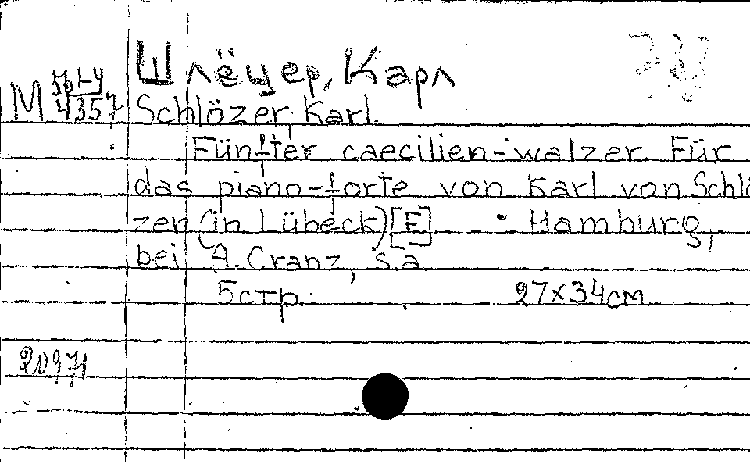 Шлёцер, Карл
М 4357 Schlözer, Karl.
Fünfter caecilien-walzer. Für
das piano-forte von Karl von Schlö
zen (in Lübeck) [F] . Hamburg,
bei A. Cranz, s.a
5стр. 27x34см.
20971